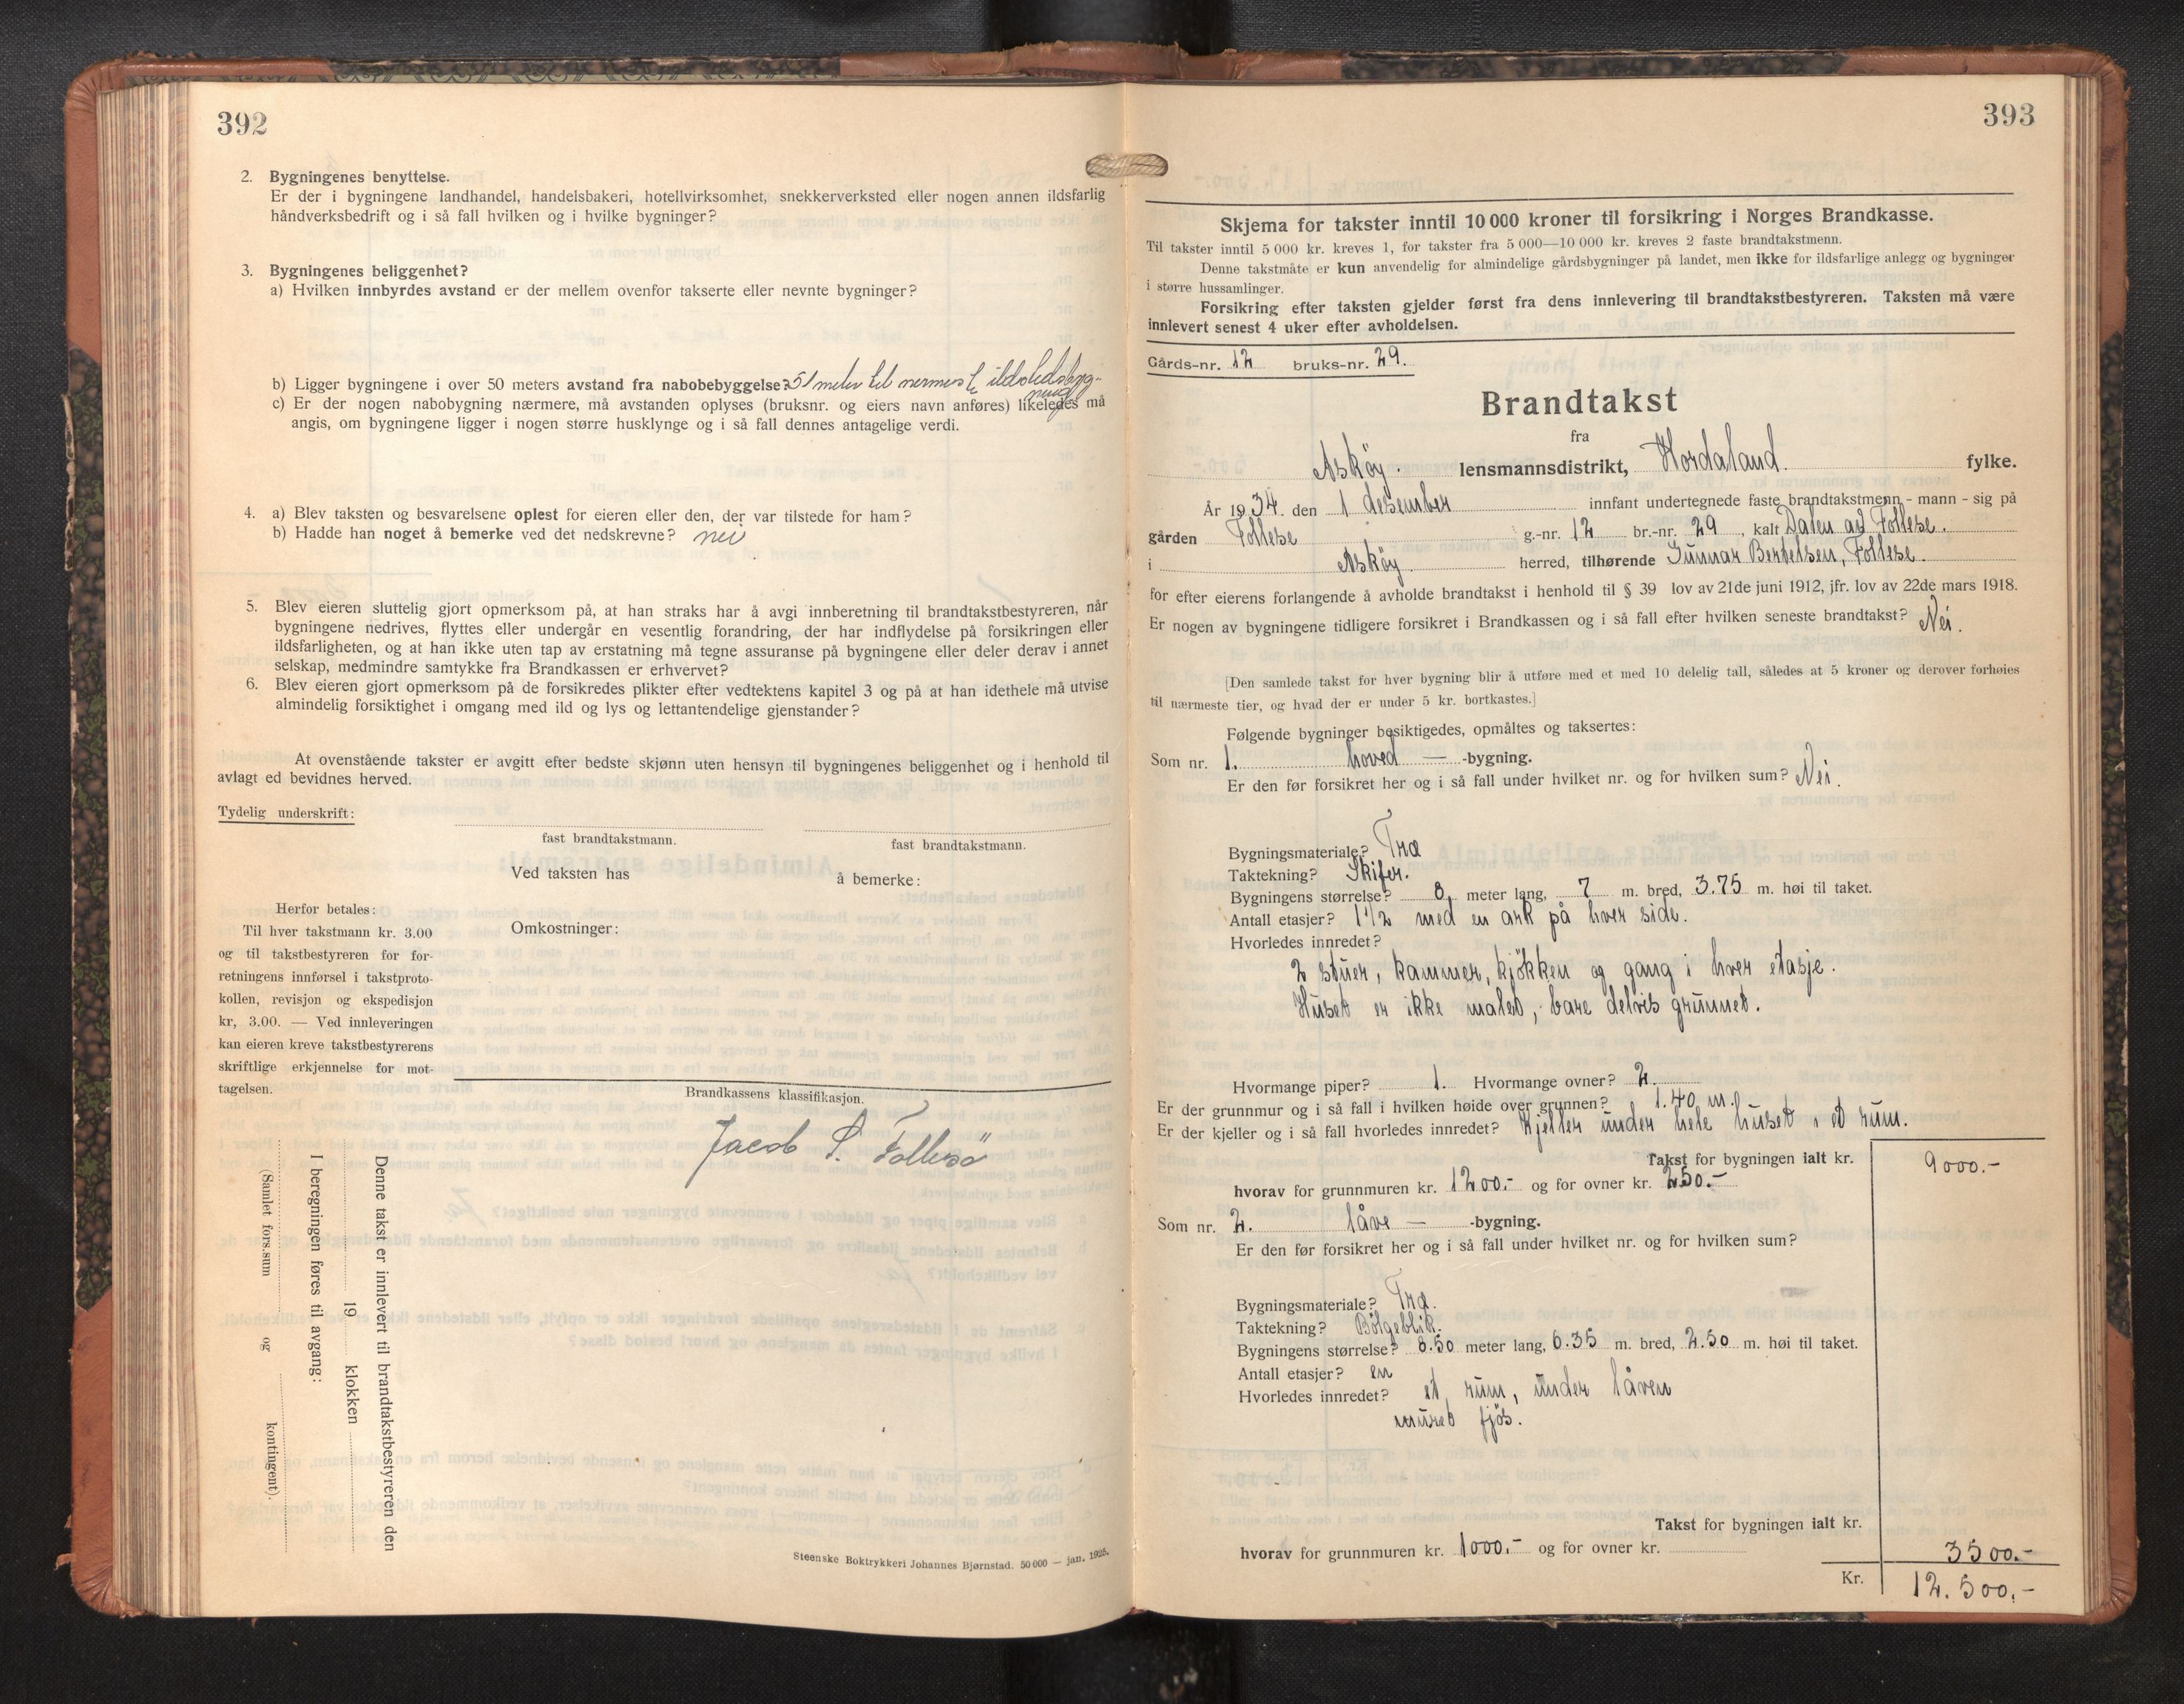 392
2. Bygningenes benyttelse.
Er der i bygningene landhandel, handelsbakeri, hotellvirksomhet, snekkerverksted eller nogen annen ildsfarlig
håndverksbedrift og i så fall hvilken og i hvilke bygninger?
3. Bygningenes beliggenhet?
a) Hvilken innbyrdes avstand er der mellem ovenfor takserte eller nevnte bygninger?
b) Ligger bygningene i over 50 meters avstand fra nabobebyggelse? 51 meter til nermest ildstedsbyg-
ning
c) Er der nogen nabobygning nærmere, må avstanden oplyses (bruksnr. og eiers navn anføres) likeledes må
angis, om bygningene ligger i nogen større husklynge og i så fall dennes antagelige verdi.
4. a) Blev taksten og besvarelsene oplest for eieren eller den, der var tilstede for ham?
b) Hadde han noget å bemerke ved det nedskrevne? nei
5. Blev eieren sluttelig gjort opmerksom på, at han straks har å avgi innberetning til brandtakstbestyreren, når
bygningene nedrives, flyttes eller undergår en vesentlig forandring, der har indflydelse på forsikringen eller
ildsfarligheten, og at han ikke uten tap av erstatning må tegne assuranse på bygningene eller deler derav i annet
selskap, medmindre samtykke fra Brandkassen er erhvervet?
6. Blev eieren gjort opmerksom på de forsikredes plikter efter vedtektens kapitel 3 og på at han idethele må utvise
almindelig forsiktighet i omgang med ild og lys og lettantendelige gjenstander?
At ovenstående takster er avgitt efter bedste skjønn uten hensyn til bygningenes beliggenhet og i henhold til
avlagt ed bevidnes herved.
Tydelig underskrift:
fast brandtakstmann. fast brandtakstmann.
Ved taksten has å bemerke:
Herfor betales:
Til hver takstmann kr. 3.00
og til takstbestyreren for for-
retningens innførsel i takstproto-
kollen, revisjon og ekspedisjon
kr, 3.00. — Ved innleveringen
kan eieren kreve takstbestyrerens
skriftlige erkjennelse for mot-
tagelsen.
Omkostninger:
Brandkassens klassifikasjon.
Jacob S. Follesö
Denne takst er innlevert til brandtakstbestyreren den
19 klokken
I beregningen føres til avgang:
(Samlet fors.sum og kontingent).
Steenske Boktrykkeri Johannes Bjørnstad. 50 000 — jan. 1925.
393
Skjema for takster inntil 10 000 kroner til forsikring i Norges Brandkasse.
Til takster inntil 5 000 kr. kreves 1, for takster fra 5 000—10 000 kr. kreves 2 faste brandtakstmenn.
Denne takstmåte er kun anvendelig for almindelige gårdsbygninger på landet, men ikke for ildsfarlige anlegg og bygninger
i større hussamlinger.
Forsikring efter taksten gjelder først fra dens innlevering til brandtakstbestyreren. Taksten må være
innlevert senest 4 uker efter avholdelsen.
Gårds-nr. 12 bruks-nr. 29.
Brandtakst
fra
Asköy. lensmannsdistrikt, Hordaland. fylke.
År 1934. den 1 desember innfant undertegnede faste brandtakstmenn - mann - sig på
gården Follese g.-nr. 12 br.-nr. 29, kalt Dalen av Follese.
i Asköy. herred, tilhørende Gunnar Bertelsen, Follese.
for efter eierens forlangende å avholde brandtakst i henhold til § 39 lov av 21de juni 1912, jfr. lov av 22de mars 1918.
Er nogen av bygningene tidligere forsikret i Brandkassen og i så fall efter hvilken seneste brandtakst? Nei.
[Den samlede takst for hver bygning blir å utføre med et med 10 delelig tall, således at 5 kroner og derover forhøies
til nærmeste tier, og hvad der er under 5 kr. bortkastes.]
Følgende bygninger besiktigedes, opmåltes og taksertes:
Som nr. 1. hoved — -bygning.
Er den før forsikret her og i så fall under hvilket nr. og for hvilken sum? Nei.
Bygningsmateriale? Træ
Taktekning? Skifer.
Bygningens størrelse? 8, meter lang, 7 m. bred, 3.75 m. høi til taket.
Antall etasjer? 1 1/2 med en ark på hver side.
Hvorledes innredet?
2 stuer, kammer, kjökken og gang i hver etasje.
Huset er ikke malet, bare delvis grunnet.
Hvormange piper? 1. Hvormange ovner? 2.
Er der grunnmur og i så fall i hvilken høide over grunnen? 1.40 m.
Er der kjeller og i så fall hvorledes innredet? Kjeller under hele huset i et rum.
Takst for bygningen ialt kr. 9000.-
hvorav for grunnmuren kr. 1200.- og for ovner kr. 250.-
Som nr. 2. låve — -bygning.
Er den før forsikret her og i så fall under hvilket nr. og for hvilken sum?
Bygningsmateriale? Træ.
Taktekning? Bölgeblik.
Bygningens størrelse? 8.50 meter lang, 6.35 m. bred, 2.50 m. høi til taket.
Antall etasjer? en
Hvorledes innredet? et rum, under låven
muret fjös.
Takst for bygningen ialt kr.
hvorav for grunnmuren kr. 1000.- og for ovner kr. 3500.-
Kr. 12.500,-